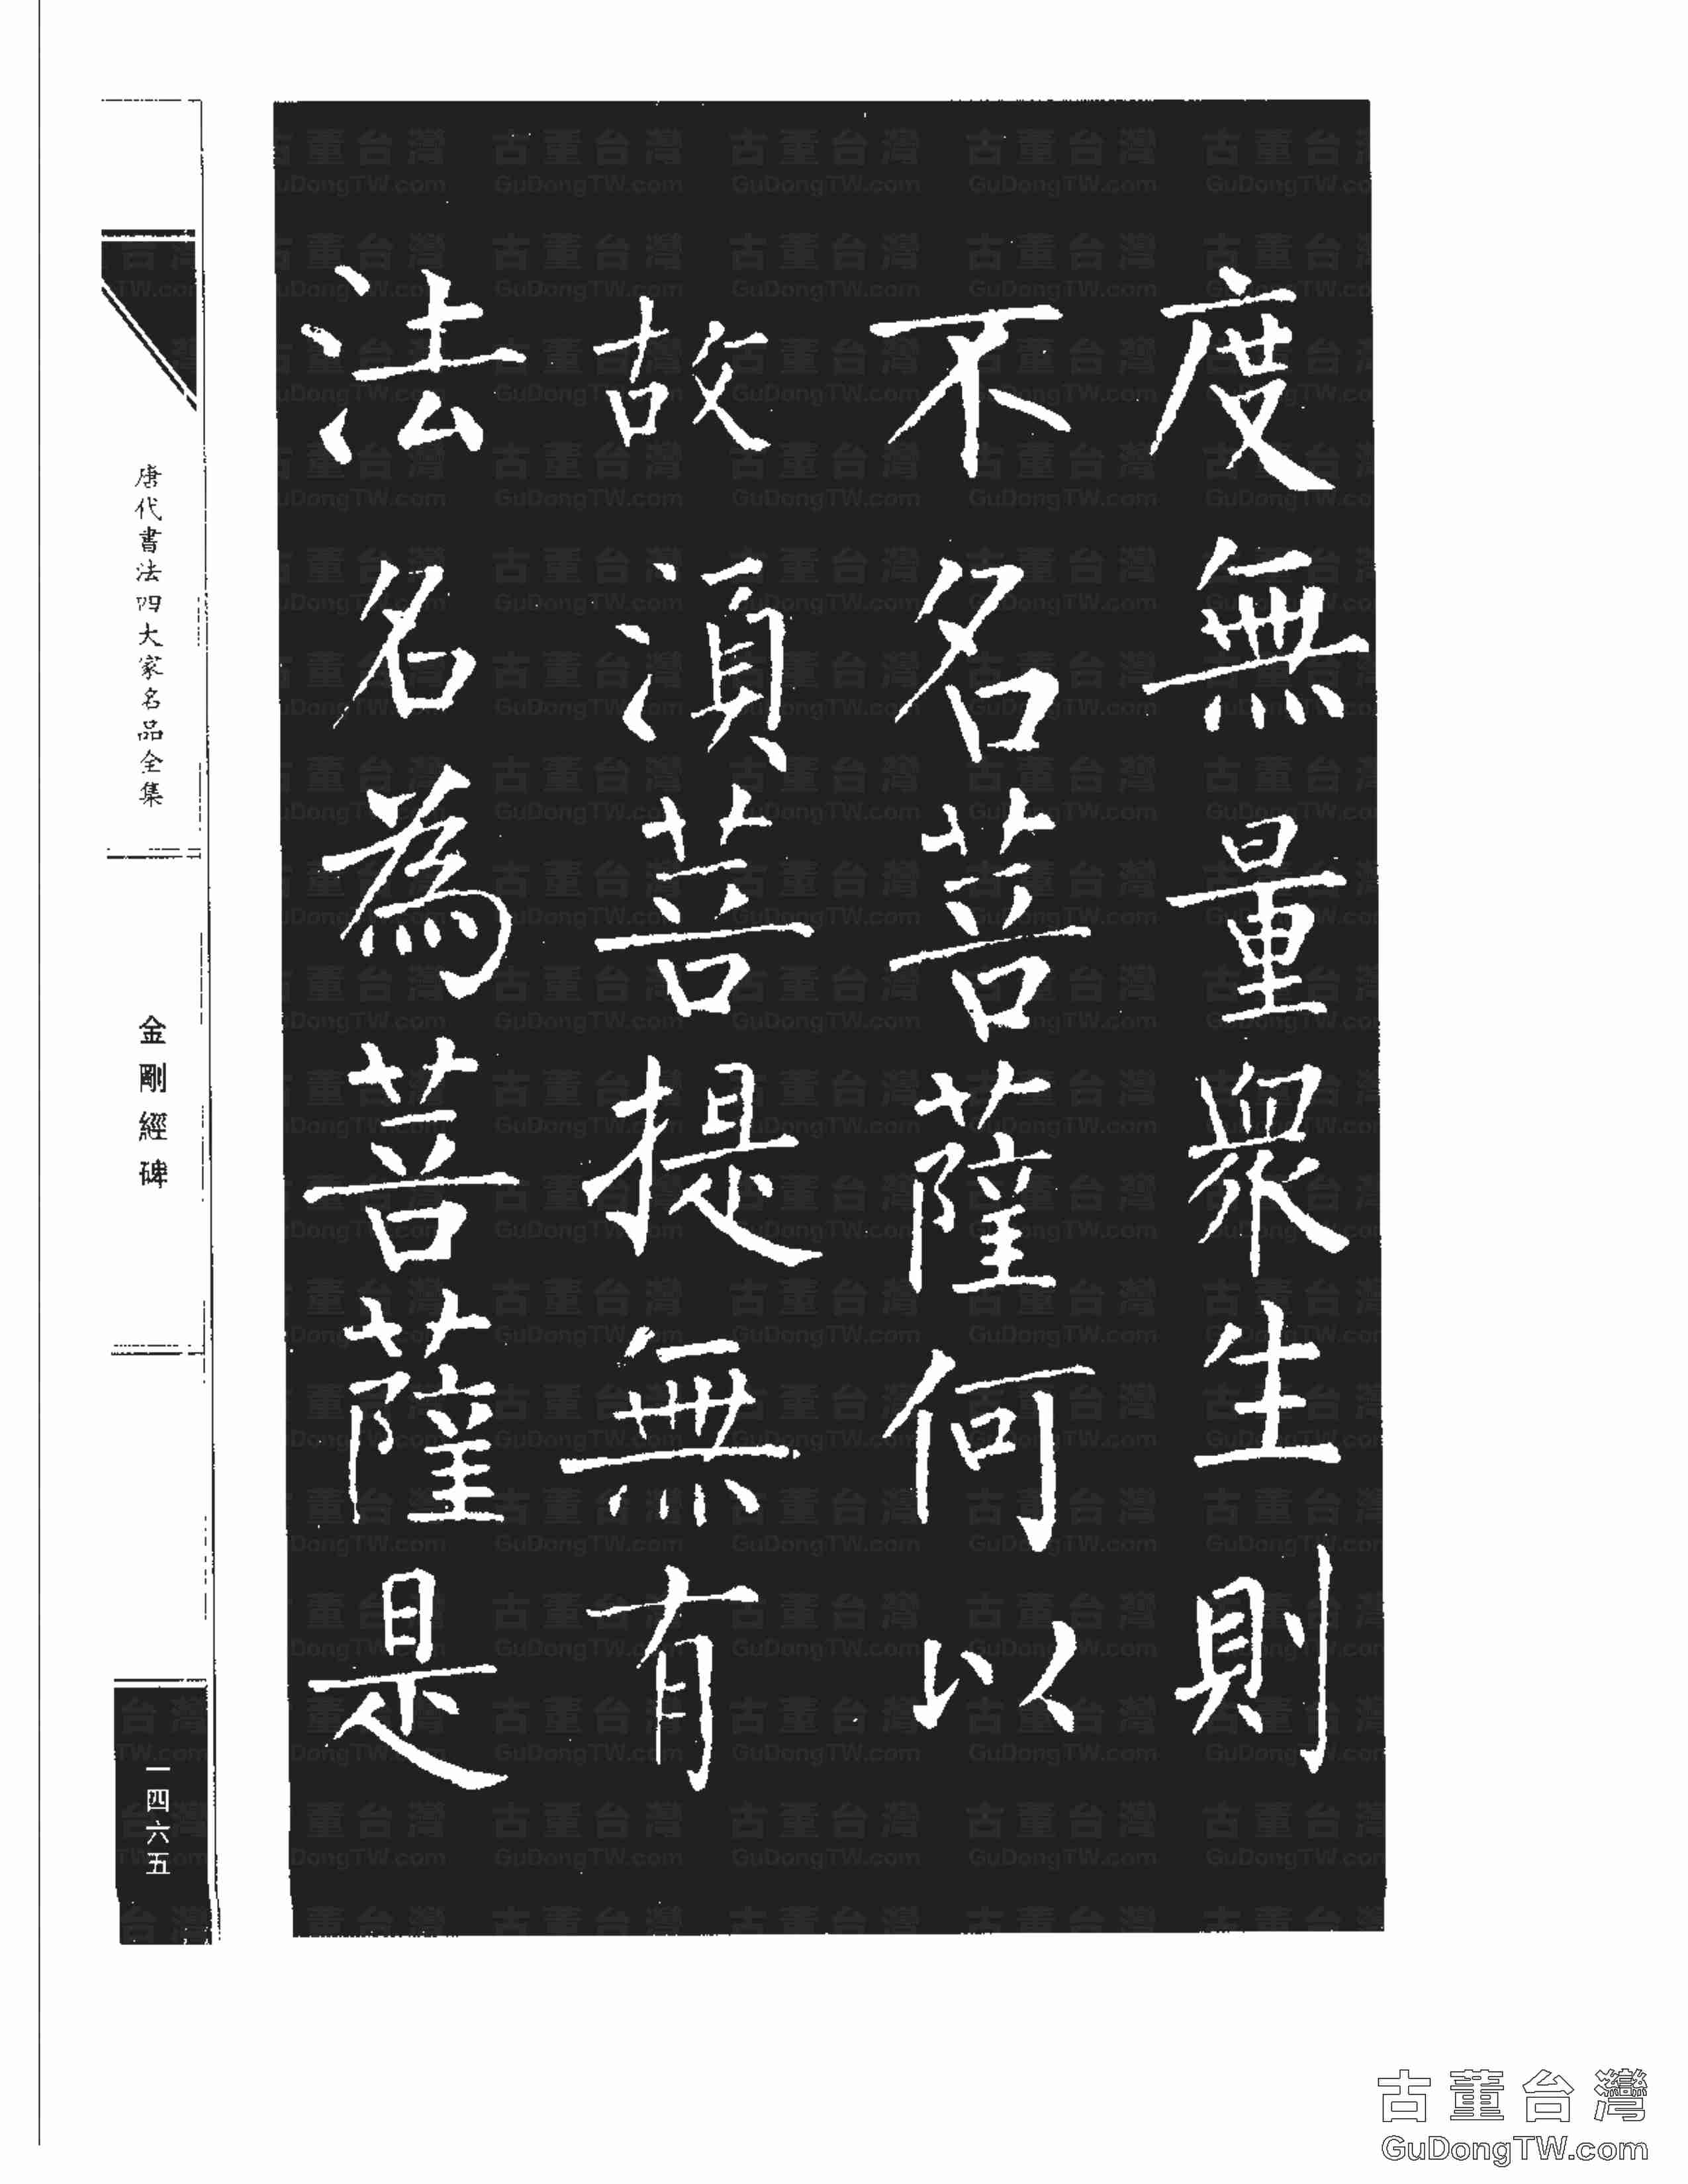 度無量眾生則
不名菩薩何以
故湏菩提無有
法名為菩薩是
唐代書法四大家名品全集
金剛經碑
一四六五
古董台灣
GuDongTW.com